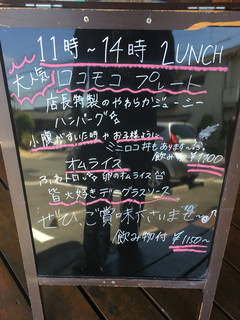 11時～14時 LUNCH
大人気
ロコモコ プレート
店長特製のやわらかジューシー
ハンバーグ☆
小腹がすいた時や お子様ように
ミニロコ丼もあります
飲み物付 ¥1100
オムライス
ふわトロッな 卵のオムライス
皆大好きデミグラスソース
ぜひ、ご賞味下さいませ
飲み物付 ¥1150～